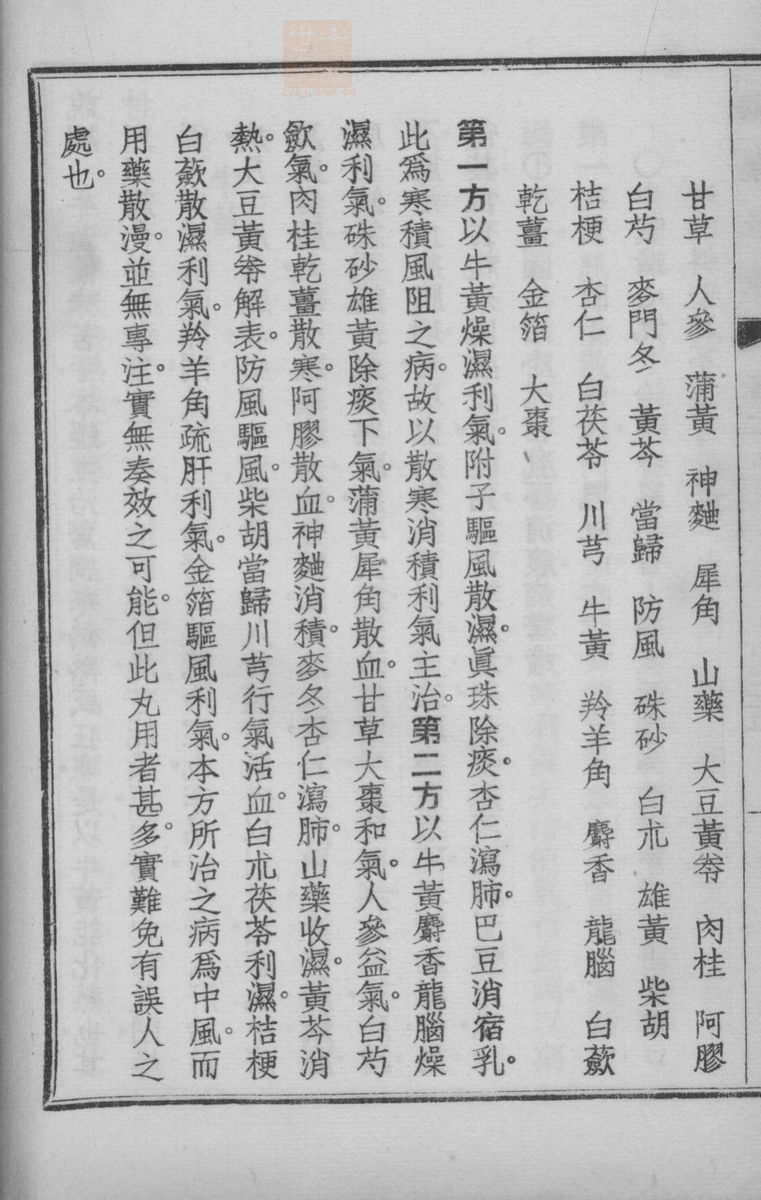 甘草　人參　蒲黃　神麯　犀角　山藥　大豆黃卷　肉桂　阿膠
白芍　麥門冬　黃芩　當歸　防風　硃砂　白朮　雄黃　柴胡
桔梗　杏仁　白茯苓　川芎　牛黃　羚羊角　麝香　龍腦　白蘞
乾薑　金箔　大棗、
第一方以牛黃燥濕利氣。附子驅風散濕。眞珠除痰。杏仁瀉肺。巴豆消宿乳。
此爲寒積風阻之病。故以散寒消積利氣主治。第二方以牛黃麝香龍腦燥
濕利氣。硃砂雄黃除痰下氣。蒲黃犀角散血。甘草大棗和氣。人參益氣。白芍
歛氣。肉桂乾薑散寒。阿膠散血。神麯消積。麥冬杏仁瀉肺。山藥收濕。黃芩消
熱。大豆黃卷解表。防風驅風。柴胡當歸川芎行氣活血。白朮茯苓利濕。桔梗
白蘞散濕利氣。羚羊角疏肝利氣。金箔驅風利氣。本方所治之病爲中風。而
用藥散漫。並無專注。實無奏效之可能。但此丸用者甚多。實難免有誤人之
處也。